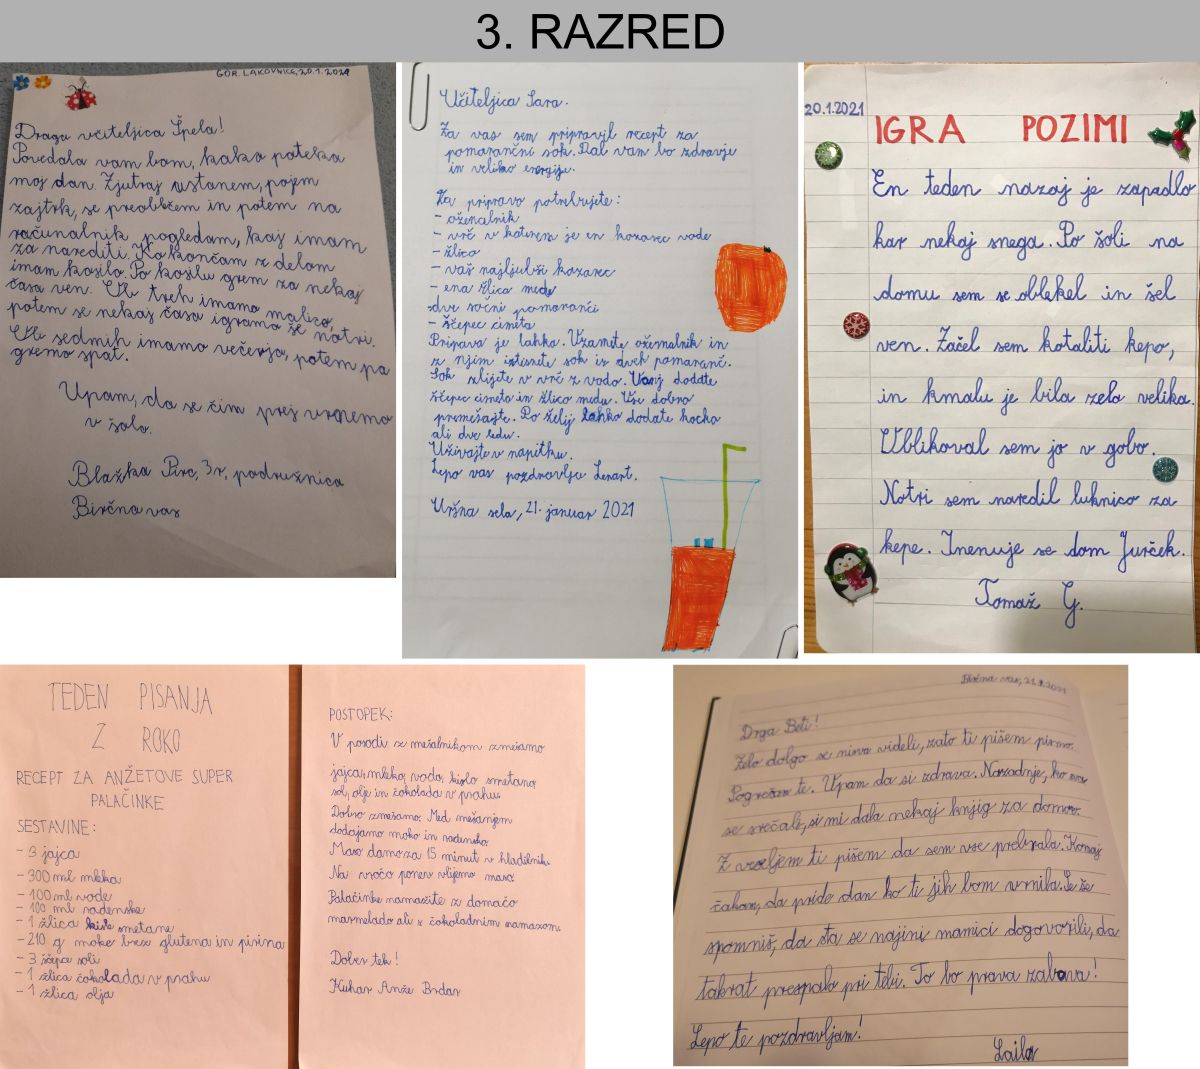 3. RAZRED
GOR. LAKOVNICE, 20.1.2021
Draga učiteljica Špela!
Povedala vam bom, kako poteka
moj dan. Zjutraj vstanem, pojem
zajtrk, se preoblečem in potem na
računalnik pogledam, kaj imam
za narediti. Ko končam z delom
imam kosilo. Po kosilu grem za nekaj
časa ven. Ob treh imamo malico,
potem se nekaj časa igramo še notri.
Ob sedmih imamo večerjo, potem pa
gremo spat.
Upam, da se čim prej vrnemo
v šolo.
Blažka Pirc, 3.r, podružnica
Birčna vas
Učiteljica Sara.
Za vas sem pripravil recept za
pomarančni sok. Dal vam bo zdravje
in veliko energije.
Za pripravo potrebujete:
- ožemalnik
- vrč v katerem je en kozarec vode
- žlico
- vaš najljubši kozarec
- ena žlica medu
dve sočni pomaranči
- ščepec cimeta
Priprava je lahka. Vzamite ožemalnik in
z njim iztisnete sok iz dveh pomaranč.
Sok zlijete v vrč z vodo. Vanj dodate
ščepec cimeta in žlico medu. Vse dobro
premešajte. Po želji lahko dodate kocko
ali dve ledu.
Uživajte v napitku.
Lepo vas pozdravlja Lenart.
Uršna sela, 21. januar 2021
20.1.2021
IGRA POZIMI
En teden nazaj je zapadlo
kar nekaj snega. Po šoli na
domu sem se oblekel in šel
ven. Začel sem kotaliti kepo,
in kmalu je bila zelo velika.
Oblikoval sem jo v gobo.
Notri sem naredil luknico za
kepe. Imenuje se dom Jurček.
Tomaž G.
TEDEN PISANJA
Z ROKO
RECEPT ZA ANŽETOVE SUPER
PALAČINKE
SESTAVINE:
- 3 jajca
- 300 ml mleka
- 100 ml vode
- 100 ml radenske
- 1 žlica kisle smetane
- 210 g moke brez glutena in pirina
- 3 ščepe soli
- 1 žlica čokolada v prahu
- 1 žlica olja
POSTOPEK:
V posodi z mešalnikom zmešamo
jajca, mleko, vodo, kislo smetano
sol, olje in čokolada v prahu.
Dobro zmešamo. Med mešanjem
dodajamo moko in radensko.
Maso damo za 15 minut v hladilnik.
Na vročo ponev vlijemo maso.
Palačinke namažite z domačo
marmelado ali s čokoladnim namazom.
Dober tek!
Kuhar Anže Brdar
Birčna vas, 21.1.2021
Drga Beti!
Zelo dolgo se nisva videli, zato ti pišem pismo.
Pogrešam te. Upam da si zdrava. Nazadnje, ko sva
se srečali, si mi dala nekaj knjig za domov.
Z veseljem ti pišem da sem vse prebrala. Komaj
čakam, da pride dan ko ti jih bom vrnila. Se še
spomniš, da sta se najini mamici dogovorili, da
takrat prespalo pri tebi. To bo prava zabava!
Lepo te pozdravljam!
Laila